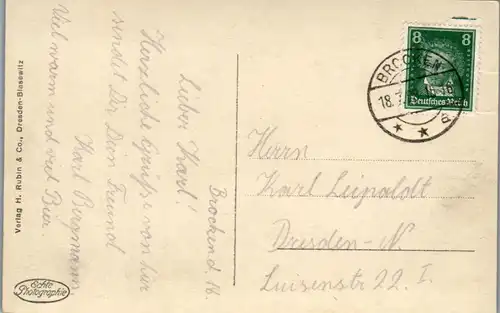 Brockend. 18.
Lieber Karl!
Herzliche Grüße von hier
sendet Dir Dein Freund
Karl Bergmann.
Viel warm und viel Bier.
Verlag H. Rubin & Co., Dresden-Blasewitz
Echte
Photographie
8 8
Deutsches Reich
BROCKEN
18.
Herrn
Karl Leipoldt
Dresden-N
Luisenstr 22. I.